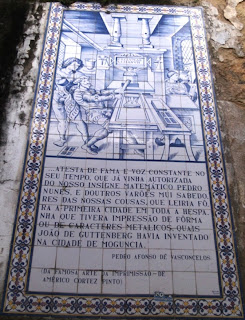 ...ATESTA DE FAMA E VOZ CONSTANTE NO
SEU TEMPO, QUE JÁ VINHA AUTORIZADA
DO NOSSO INSIGNE MATEMATICO PEDRO
NUNES, E DOUTROS VARÕES MUI SABEDO-
RES DAS NOSSAS COUSAS, QUE LEIRIA FÔ-
RA A PRIMEIRA CIDADE EM TODA A HESPA-
NHA QUE TIVERA IMPRESSÃO DE FÔRMA
OU DE CARACTERES METALICOS, QUAIS
JOÃO DE GUTTENBERG HAVIA INVENTADO
NA CIDADE DE MOGUNCIA.
PEDRO AFONSO DE VASCONCELOS
(DA FAMOSA ARTE DA IMPRIMISSÃO-DE
AMÉRICO CORTEZ PINTO)